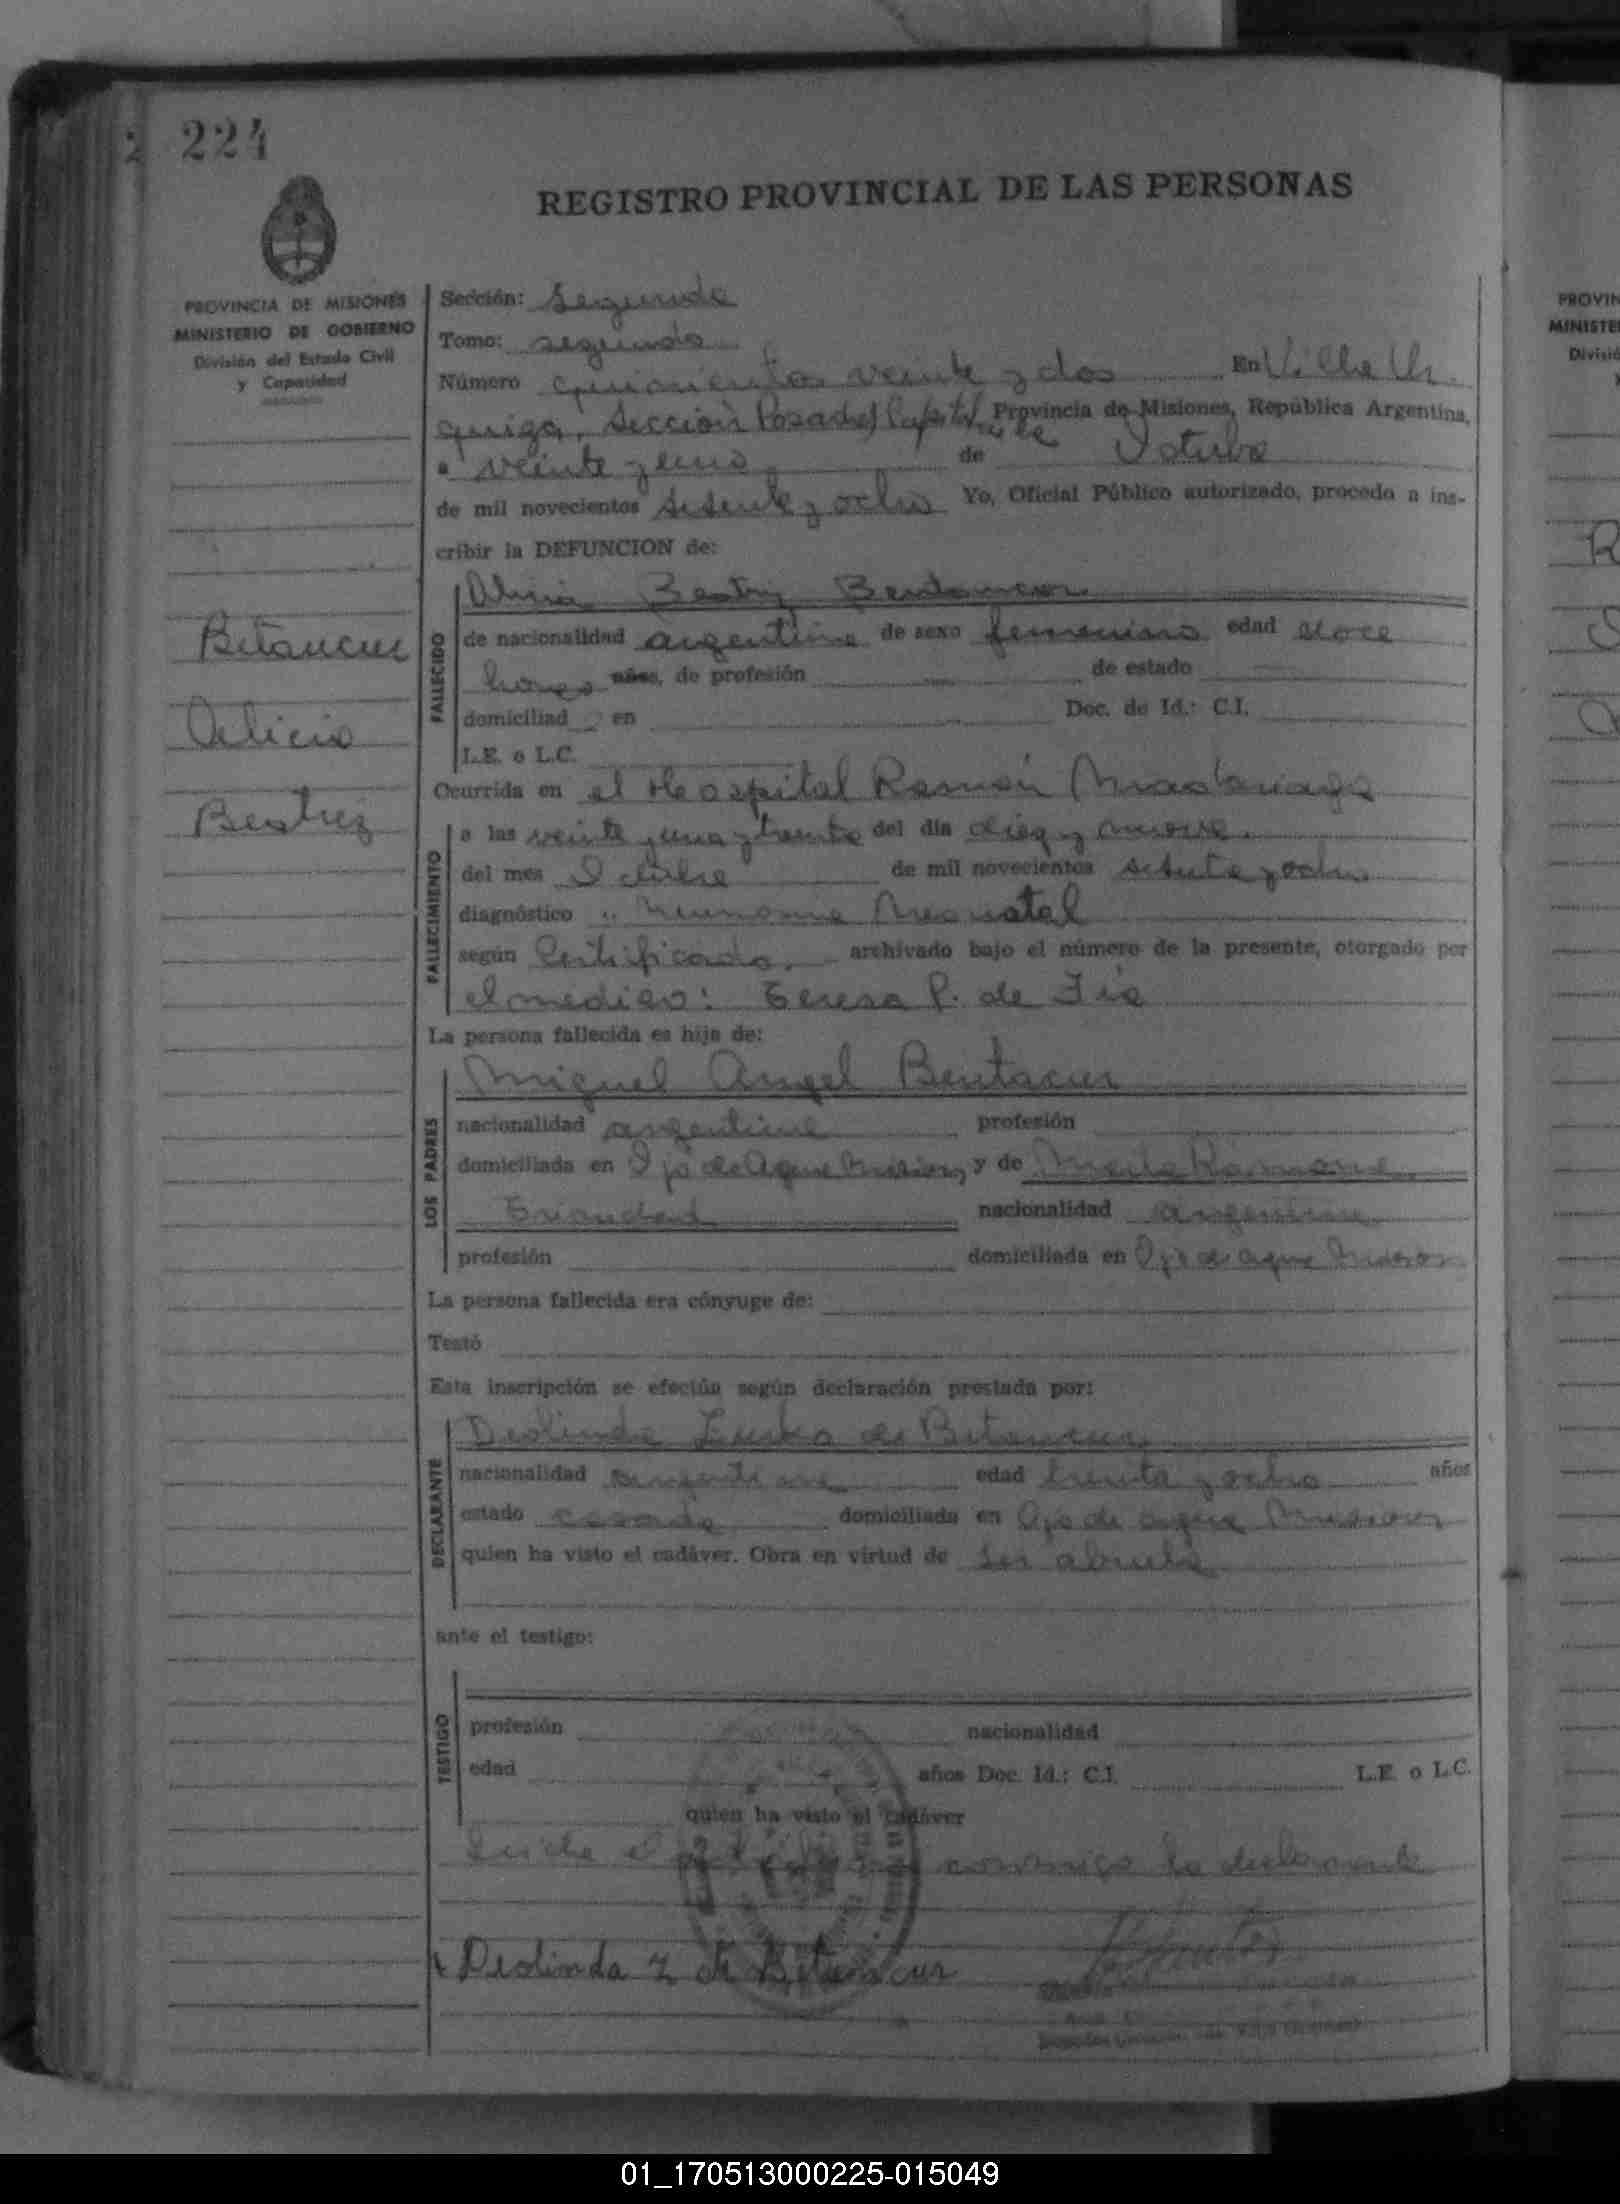 224
REGISTRO PROVINCIAL DE LAS PERSONAS
PROVINCIA DE MISIONES
MINISTERIO DE GOBIERNO
División del Estado Civil
y Capacidad
Betancur
Alicia
Beatriz
Sección: Segunda
Tomo: segundo
Número quinientos veinte y dos En Villa Ur
quiza, Sección Posadas Capital Provincia de Misiones, República Argentina,
a veinte y uno de Octubre
de mil novecientos setenta y ocho Yo, Oficial Público autorizado, procedo a ins-
cribir la DEFUNCION de:
FALLECIDO
Alicia Beatriz
de nacionalidad argentina de sexo femenino edad doce
horas años, de profesión de estado
domiciliad en Doc. de Id.: C.I.
L.E. o L.C.
Ocurrida en el Hospital Ramón Madariaga
FALLECIMIENTO
a las veinte y una y treinta del día diez y nueve.
del mes Octubre de mil novecientos setenta y ocho
diagnóstico Neonatal
según Certificado. archivado bajo el número de la presente, otorgado por
el medico: Teresa P. de
La persona fallecida es hija de:
LOS PADRES
Miguel Angel Bentacur
nacionalidad argentina profesión
domiciliada en Ojo de Agua Misiones y de Ramona
nacionalidad argentina
profesión domiciliada en Ojo de agua Misiones
La persona fallecida era cónyuge de:
Testó
Esta inscripción se efectúa según declaración prestada por:
DECLARANTE
Deolinda de Betancur
nacionalidad argentina edad treinta y ocho años
estado casada domiciliada en Ojo de agua Misiones
quien ha visto el cadáver. Obra en virtud de ser abuela
ante el testigo:
TESTIGO
profesión nacionalidad
edad años Doc. Id.: C.I. L.E. o L.C.
quien ha visto el cadáver
conmigo la declarante
Deolinda Z de Betancur
PROVIN
MINISTE
Divisió
01_170513000225-015049